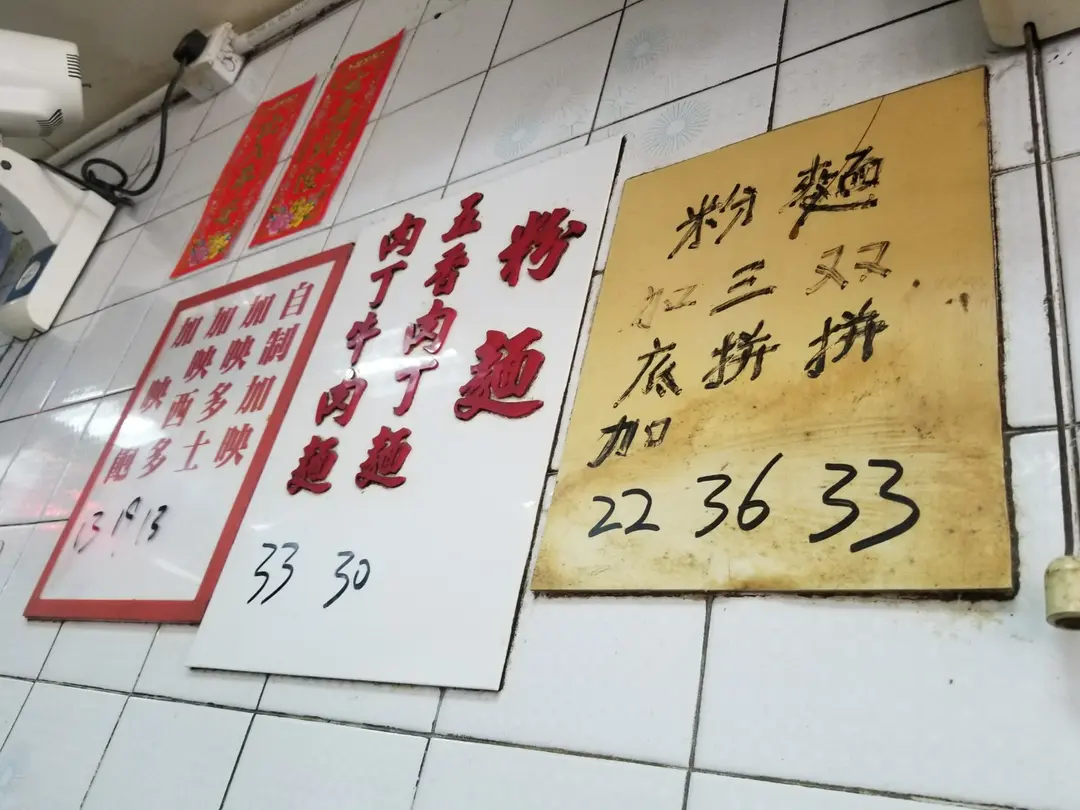 自制加映
加映多士
加映西多
加映飽
13 19 13
粉麵
五香肉丁麵
肉丁牛肉麵
33 30
粉麵
双拼
三拼
加底加
22 36 33